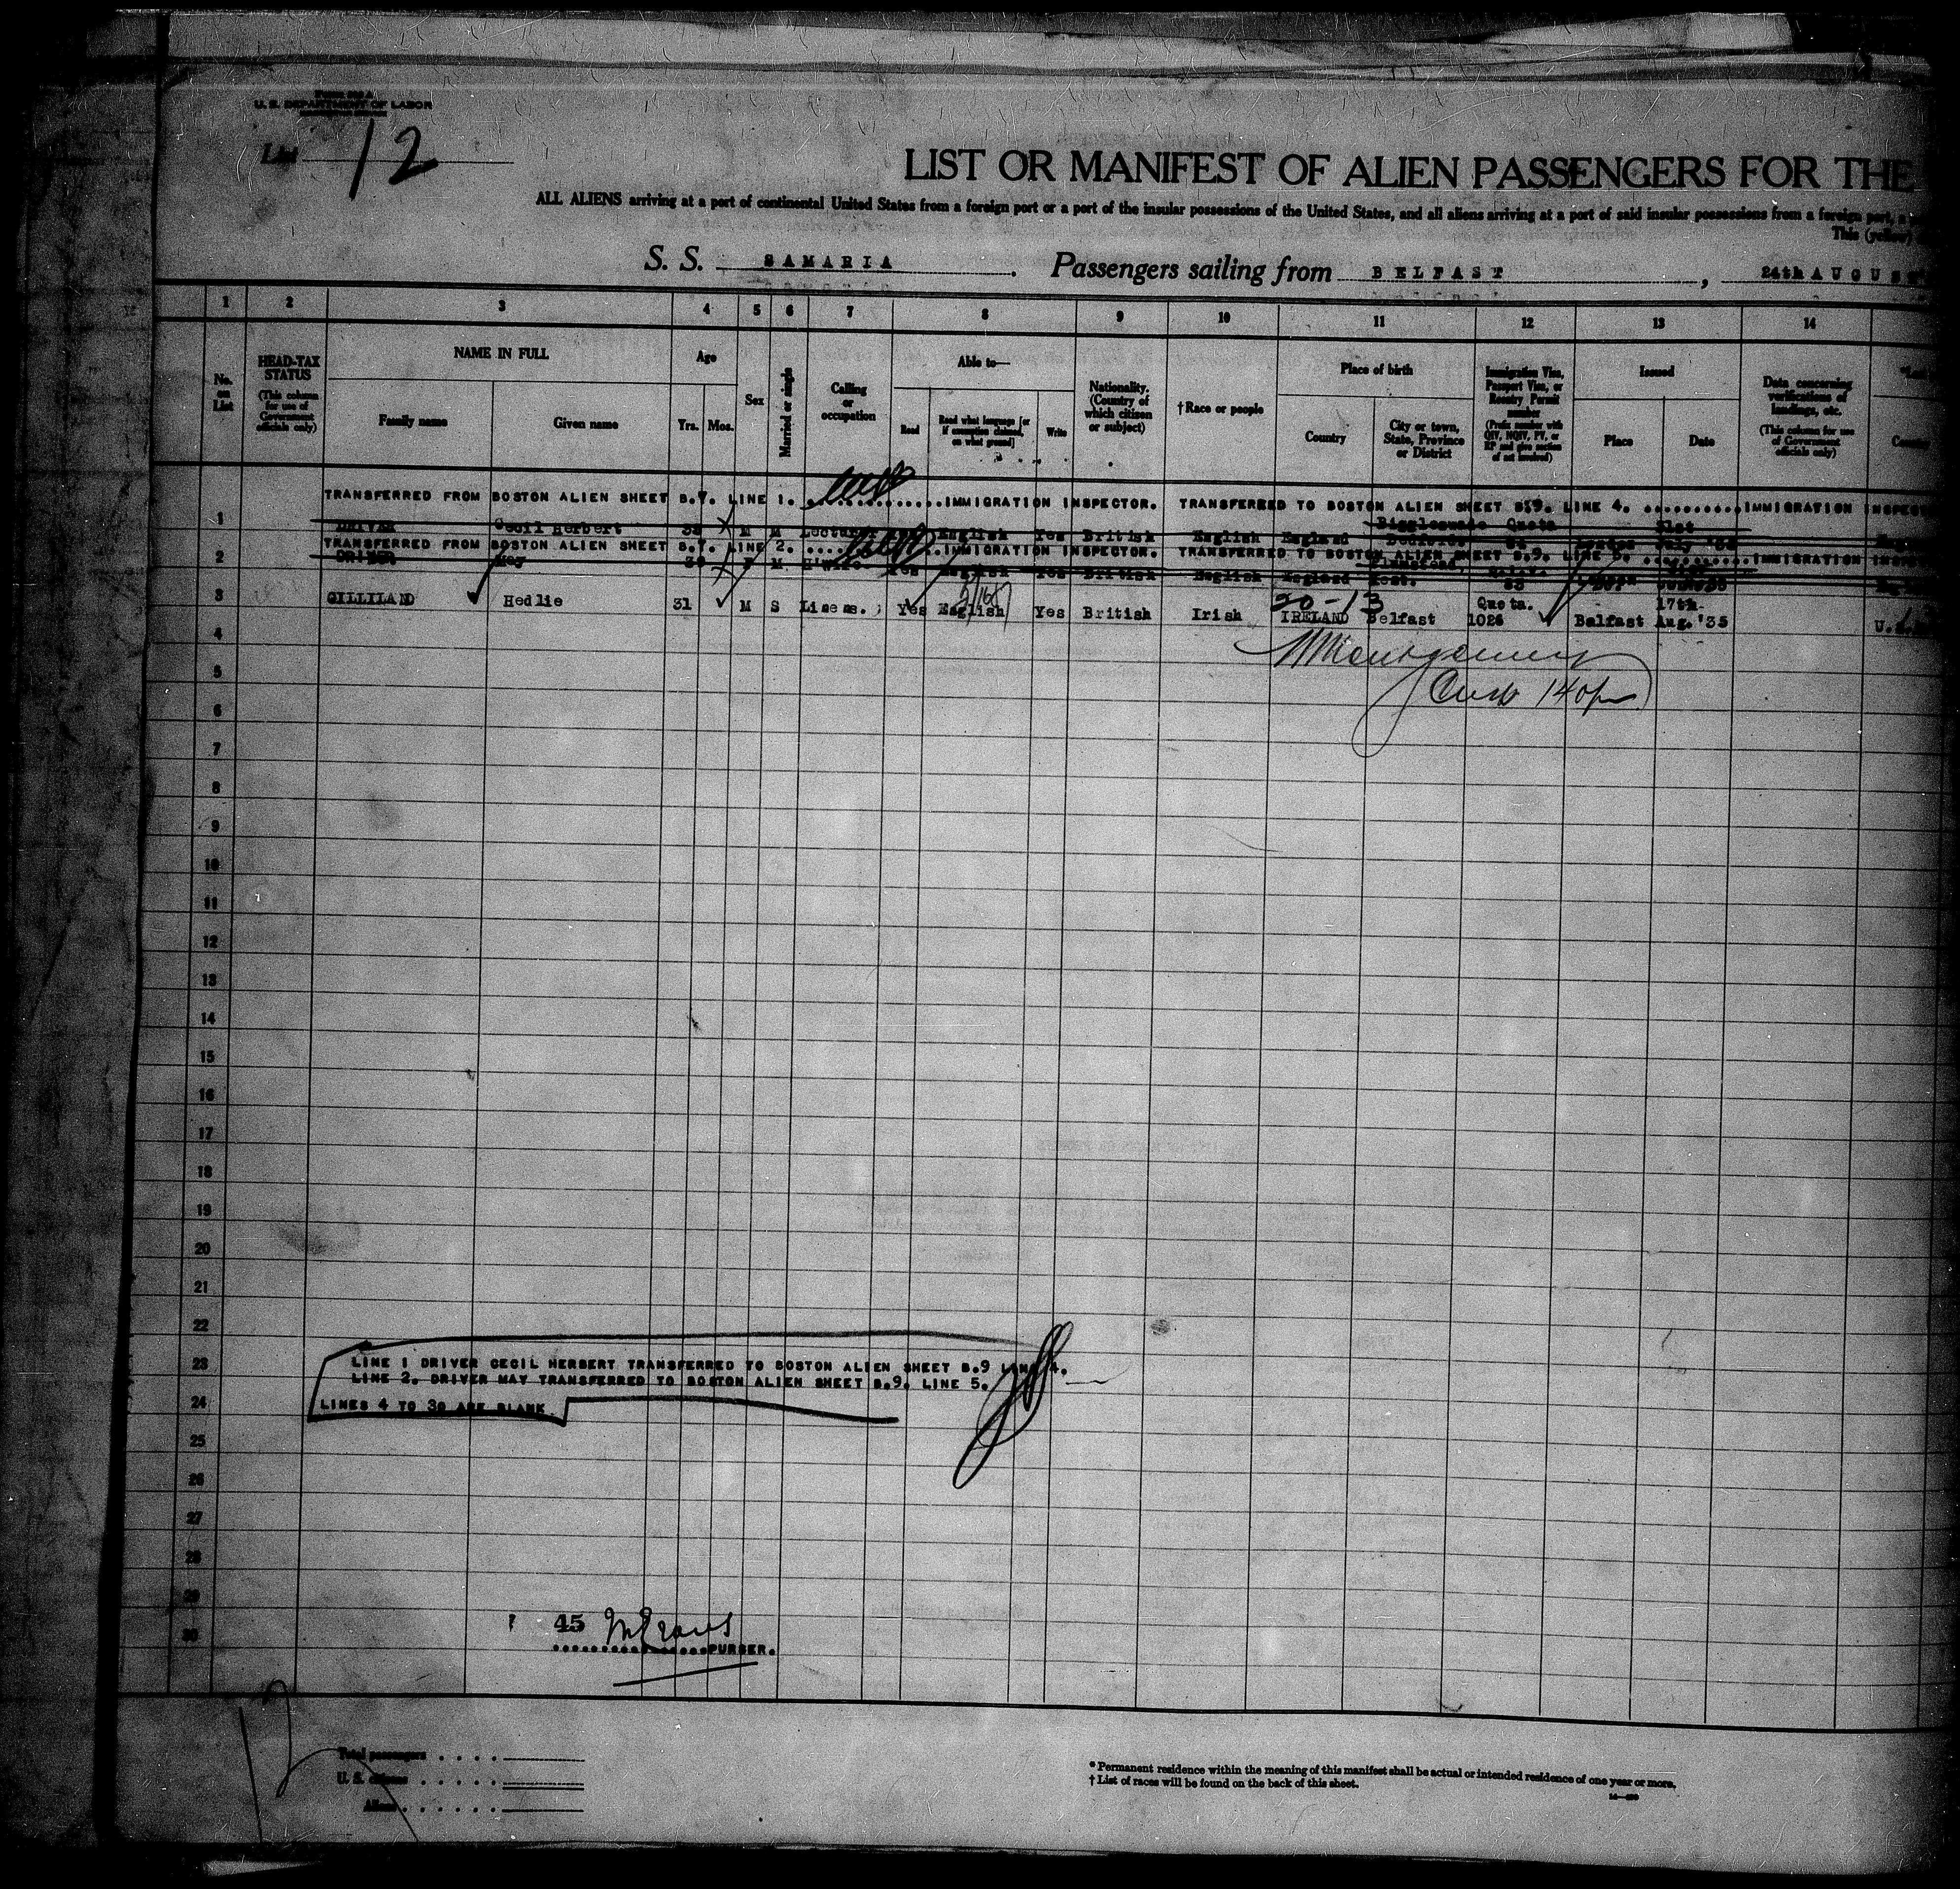 Form 500 A
U. S. DEPARTMENT OF LABOR
List 12
LIST OR MANIFEST OF ALIEN PASSENGERS FOR THE
ALL ALIENS arriving at a port of continental United States from a foreign port or a port of the insular possessions of the United States, and all aliens arriving at a port of said insular possessions from a foreign port, a
This (yellow)
S. S. SAMARIA. Passengers sailing from BELFAST, 24th AUGUS
1 2 3 4 5 6 7 8 9 10 11 12 13 14
No. on List
HEAD-TAX STATUS (This column for use of Government officials only)
NAME IN FULL
Family name Given name
Age
Yrs. Mos.
Sex
Married or single
Calling or occupation
Able to—
Read Read what language [or if exemption claimed, on what ground] Write
Nationality. (Country of which citizen or subject)
†Race or people
Place of birth
Country City or town, State, Province or District
Immigration Visa, Passport Visa, or Reentry Permit number (Prefix number with QIV, NQIV, PV, or RP and give section of act involved)
Issued
Place Date
Data concerning verifications of landings, etc. (This column for use of Government officials only)
TRANSFERRED FROM BOSTON ALIEN SHEET B.7. LINE 1. ..........IMMIGRATION INSPECTOR. TRANSFERRED TO BOSTON ALIEN SHEET B.9. LINE 4. ..........IMMIGRATION INSPEC
1 DRIVER Cecil Herbert 38 M M Lecturer English Yes British English England Biggleswade Quota London 31st July '35
TRANSFERRED FROM BOSTON ALIEN SHEET B.7. LINE 2. ..........IMMIGRATION INSPECTOR. TRANSFERRED TO BOSTON ALIEN SHEET B.9. LINE 5. ..........IMMIGRATION
2 DRIVER May F M H'wife Yes English Yes British English England Kent.
3 GILLILAND Hedlie 31 M S Linens. Yes English Yes British Irish IRELAND Belfast Quota. 1026 Belfast 17th Aug. '35 U.S.
20-13
4
Montgomery
5
6
7
8
9
10
11
12
13
14
15
16
17
18
19
20
21
22
23 LINE 1 DRIVER CECIL HERBERT TRANSFERRED TO BOSTON ALIEN SHEET B.9 LINE 4.
LINE 2. DRIVER MAY TRANSFERRED TO BOSTON ALIEN SHEET B.9. LINE 5.
24 LINES 4 TO 30 ARE BLANK
25
26
27
28
29
45
30 ................PURSER.
Total passengers . . . .
U. S. citizens . . . . .
Aliens . . . . . .
* Permanent residence within the meaning of this manifest shall be actual or intended residence of one year or more.
† List of races will be found on the back of this sheet.